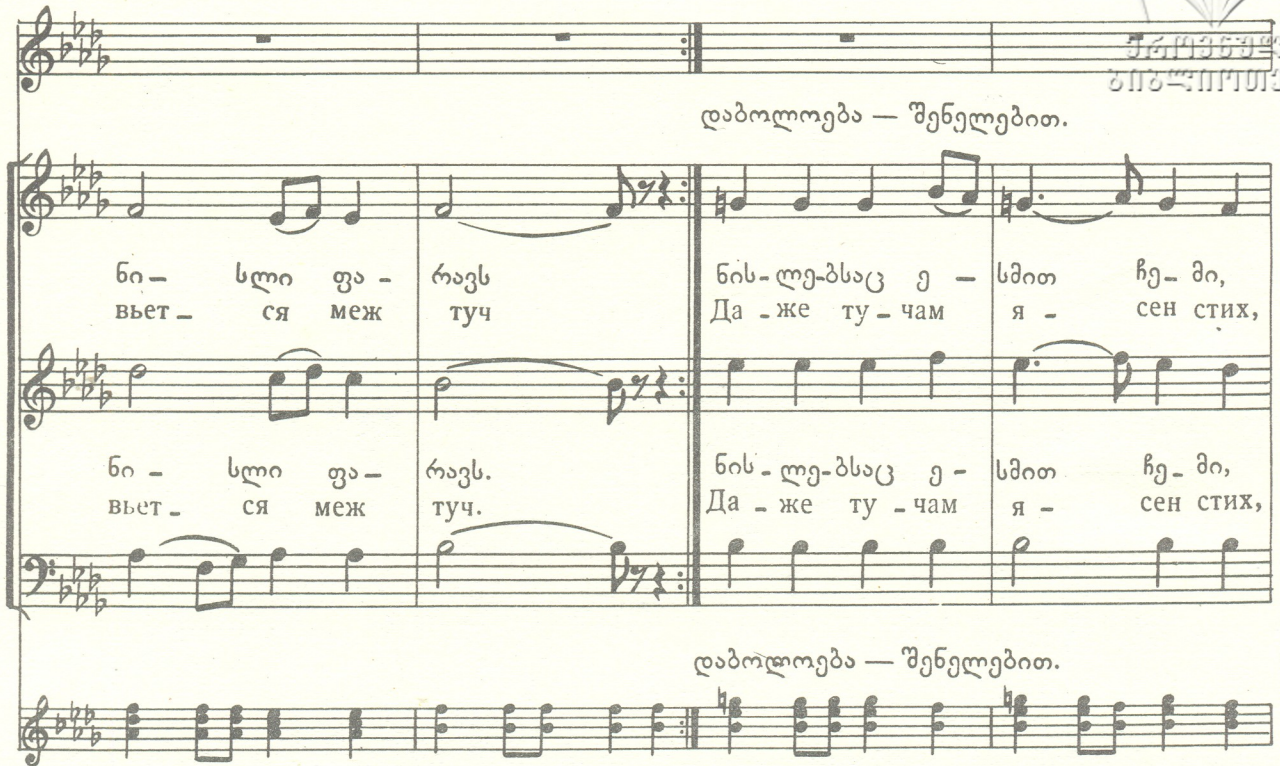 ეროვნული
ბიბლიოთეკა
დაბოლოება — შენელებით.
ნი– სლი ფა - რავს ნის-ლე-ბსაც ე – სმით ჩე– მი,
вьет – ся меж туч Да - же ту – чам я - сен стих,
ნი – სლი ფა– რავს. ნის-ლე-ბსაც ე - სმით ჩე- მი,
вьет – ся меж туч. Да - же ту -чам я - сен стих,
დაბოლოება — შენელებით.